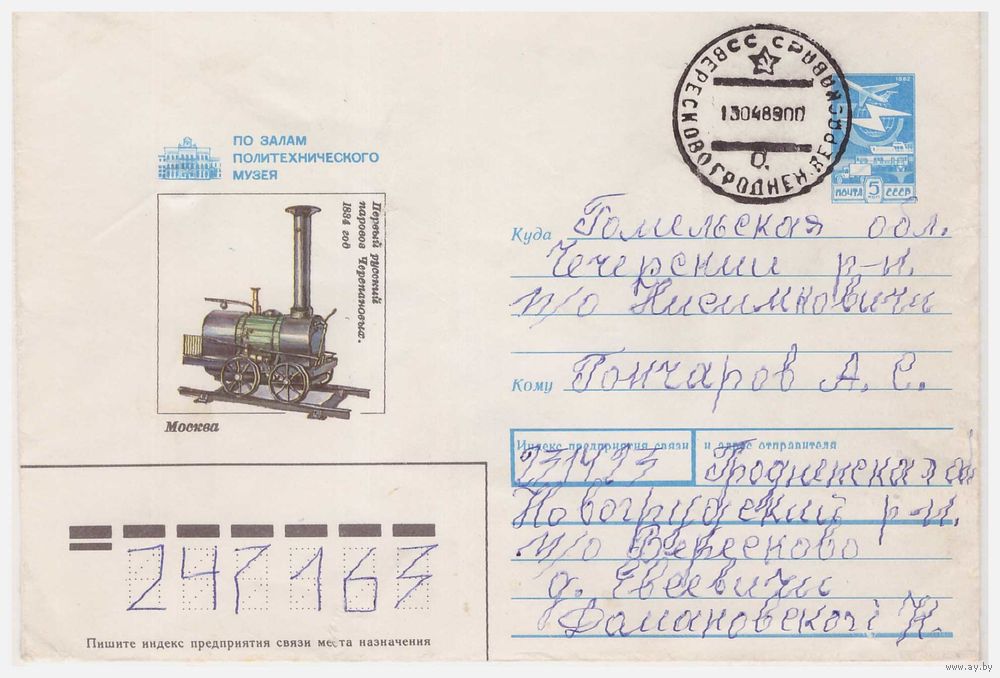 ПО ЗАЛАМ
ПОЛИТЕХНИЧЕСКОГО
МУЗЕЯ
Первый русский
паровоз Черепановых.
1834 год
Москва
ВЕРЕСКОВО ГРОДНЕН.
13048900
О.
1982
ПОЧТА 5 КОП СССР
Куда Гомельская обл.
Чечерский р-н.
п/о Нисимковичи
Кому Гончаров А. С.
Индекс предприятия связи и адрес отправителя
231423 Гродненская об
Новогрудский р-н.
п/о Вересково
д. Евсевичи
Домановской Н.
247163
Пишите индекс предприятия связи места назначения
www.ay.by